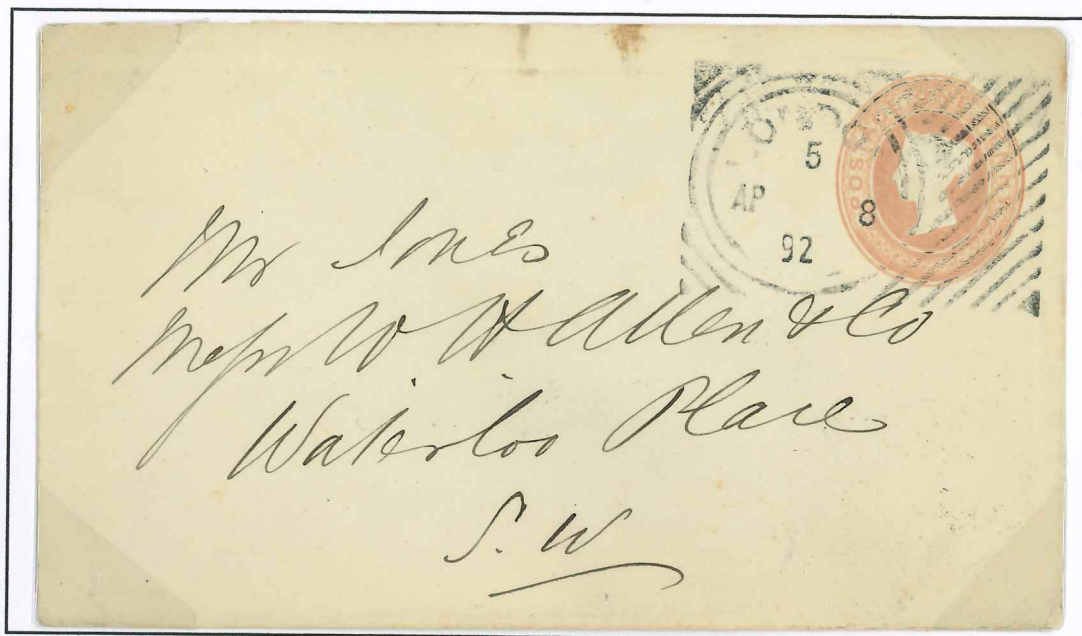 LONDON
5
AP 8
92
POSTAGE
Mr Jones
Messrs W H Allen & Co
Waterloo Place
S. W